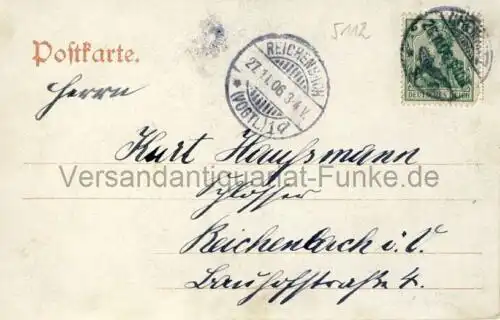 5112
Postkarte.
REICHENBACH
27.11.06.3-4V.
* (VOGTL.) 1 d
DEUTSCHES REICH
Herrn
Kurt Haußmann
Versandantiquariat-Funke.de
Schlosser
Reichenbach i. V.
Bauhofstraße 4.